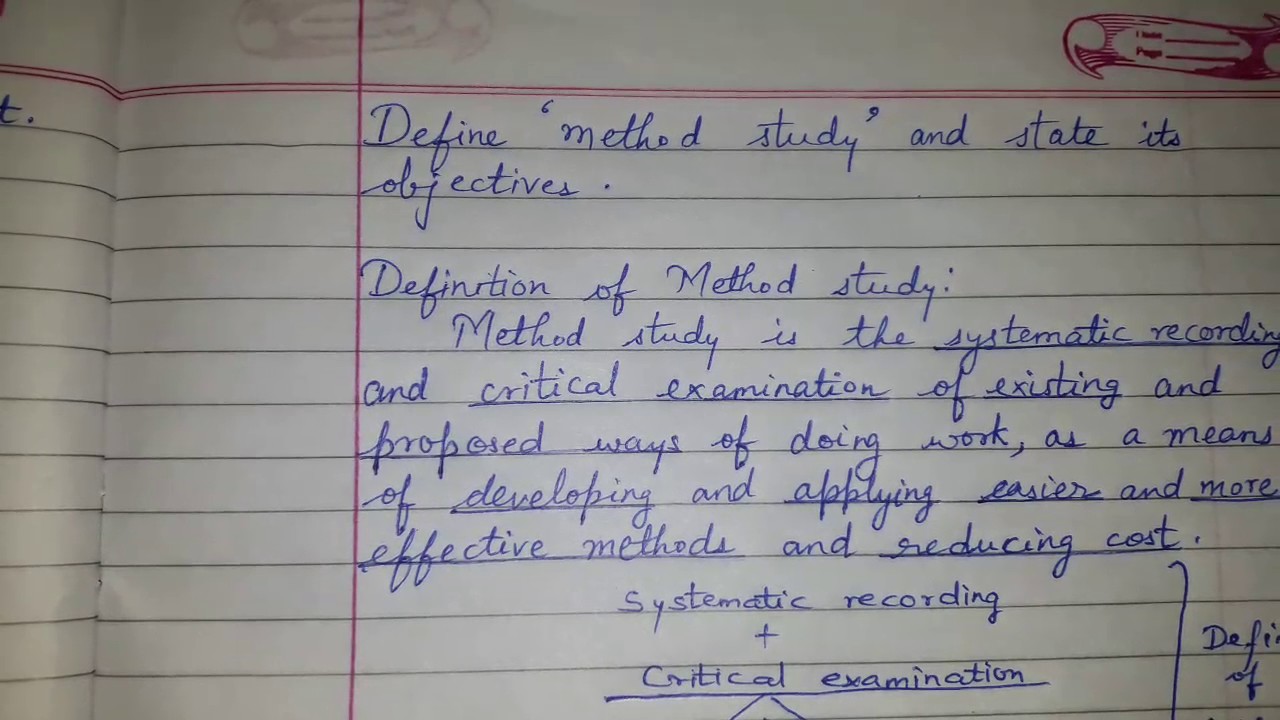 t.
Define 'method study' and state its
objectives.
Definition of Method study:
Method study is the systematic recording
and critical examination of existing and
proposed ways of doing work, as a means
of developing and applying easier and more
effective methods and reducing cost.
Systematic recording
+
Critical examination
Defi
of